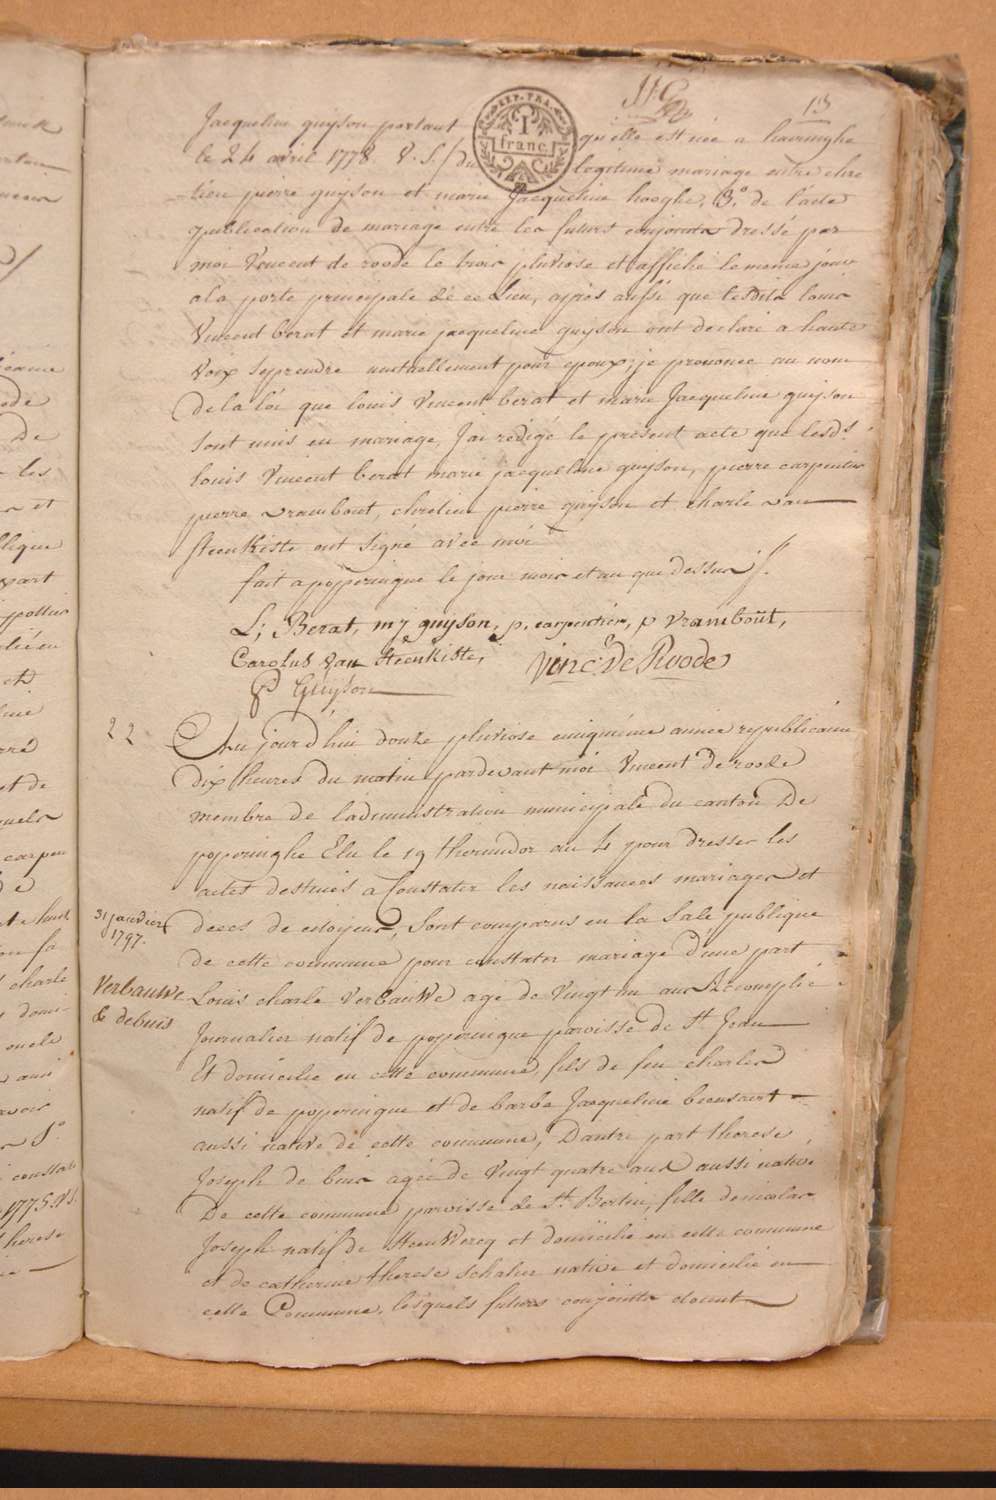 13
REP. FRA.
1
franc.
Jacqueline guyson portant qu'elle est née a haringhe
le 24 avril 1778. V. S. / du legitime mariage entre chre
-tien pierre guyson et marie Jacqueline hoeghe, 3.° de l'acte
publication de mariage entre les futurs conjoints dressé par
moi Vincent de roode le trois pluviose et affiché le meme jour
a la porte principale de ce Lieu, après aussi que lesdits louis
Vincent berat et marie jacqueline guyson ont declaré a haute
Voix se prendre mutuellement pour epoux, je prononce au nom
de la loi que louis Vincent berat et marie Jacqueline guyson
sont unis en mariage, J'ai redigé le présent acte que lesd.s
louis Vincent berat marie jacqueline guyson, pierre carpentier
pierre vrambout, chretien pierre guyson et charle van
steenkiste ont signé avec moi
fait a poperingue le jour mois et an que dessus /.
L; Berat, mj guyson, p. carpentier, p vrambout,
Carolus van steenkiste, Vinc.t De Roode
P Guyson
22 Au jourd'hui douze pluviose cinquiéme année republicaine
dix heures du matin pardevant moi Vincent de roode
membre de l'administration municipale du canton De
poperinghe Elu le 19 thermidor an 4 pour dresser les
actes destinés a Constater les naissances mariages et
31 janvier
1797.
deces de citoyens, sont comparus en la Sale publique
de cette commune pour constater mariage d'une part
Verbauwe
& debuis
Louis charle Verbauwe agé de Vingt un ans accomplie
Journalier natif de poperingue paroisse de St Jean
Et domicilie en cette commune, fils de feu charles
natif de poperingue et de barbe Jacqueline
aussi native de cette commune, D'autre part therese
Joseph de buis agée de Vingt quatre ans aussi native
De cette commune paroisse de St. Bertin, fille de nicolas
Joseph natif de steenwercq et domicilié en cette commune
et de catherine therese native et domicilié en
cette Commune, lesquels futurs conjoints etant